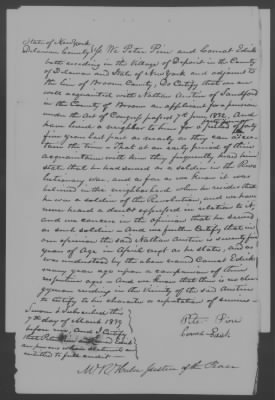 State of New York
Delaware County } ss We Peter Pine and Conrat Edick
both residing in the Village of Deposit in the County
of Delaware and State of New York and adjoined to
the line of Broom County, Do Certify that we are
well acquainted with Nathan Austin of Sanford
in the County of Broom an applicant for a pension
under the Act of Congress passed 7th June 1832, and
have been a neighbor to him for a period of
five years last past as nearly as they can
the time - That at an early period of their
acquaintance with him they frequently heard him
state that he had served as a soldier in the Revo
lutionary war, and as far as we know it was
believed in the neighborhood where he resides that
he was a soldier of the Revolution, and we have
never heard a doubt expressed in relation to it
and we concur in the opinion that he served
as such soldier - And we further Certify that in
our opinion the said Nathan Austin is seventy
years of Age in April next as he states, and so
was understood by the above named Conrat Edick
many years ago upon a comparison of their
respective ages - And we know that there is no cler
gyman residing in the vicinity of the said Austin
to Certify to his character & reputation of services -
Sworn & Subscribed this
7th day of March 1839
before me, And I Certify
that Peter Pine and Conrat Edick
are persons whose statements are
entitled to full credit
Peter Pine
Conrat Edick
Justice of the Peace